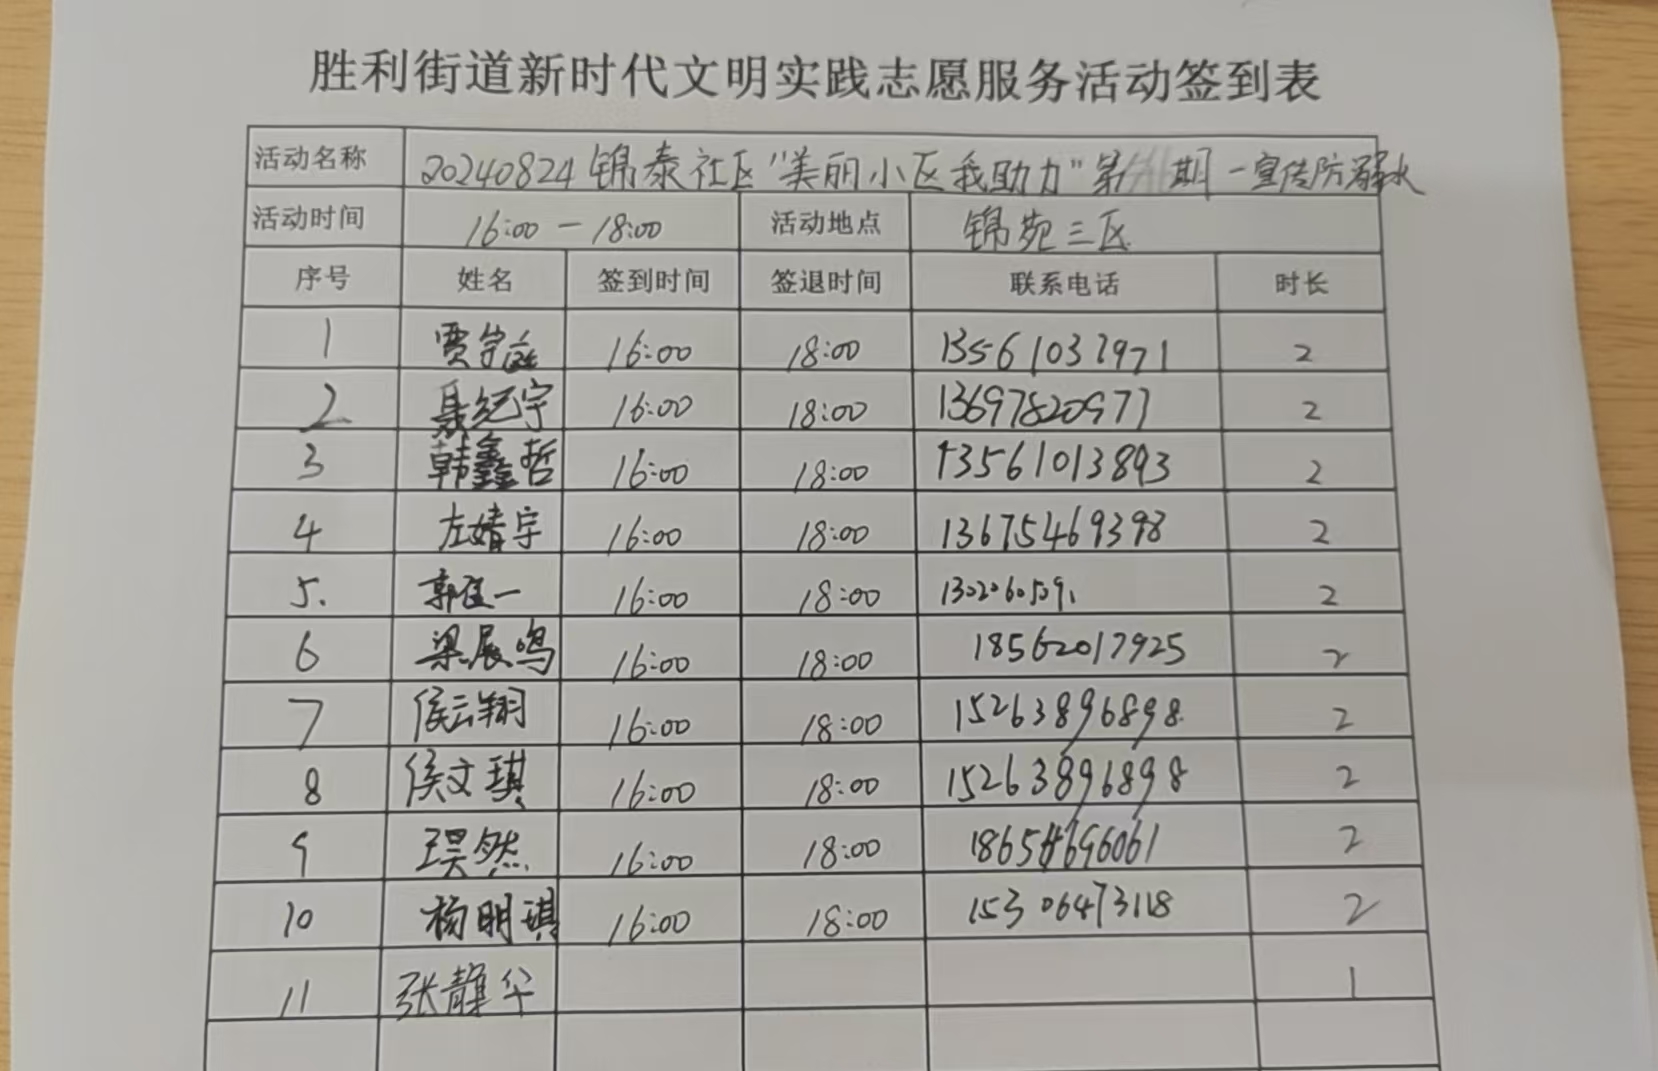 胜利街道新时代文明实践志愿服务活动签到表
活动名称 20240824锦泰社区"美丽小区我助力"第 期-宣传防溺水
活动时间 16:00-18:00 活动地点 锦苑三区
序号 姓名 签到时间 签退时间 联系电话 时长
1 贾 16:00 18:00 2
2 聂纪宇 16:00 18:00 2
3 韩鑫哲 16:00 18:00 13561013893 2
4 左婧宇 16:00 18:00 13675469398 2
5. 郭 一 16:00 18:00 2
6 梁展鸣 16:00 18:00 18562017925 2
7 侯云翔 16:00 18:00 15263896898 2
8 侯文琪 16:00 18:00 15263896898 2
9 王昊然 16:00 18:00 18654696061 2
10 杨明琪 16:00 18:00 15306473118 2
11 张静华 1